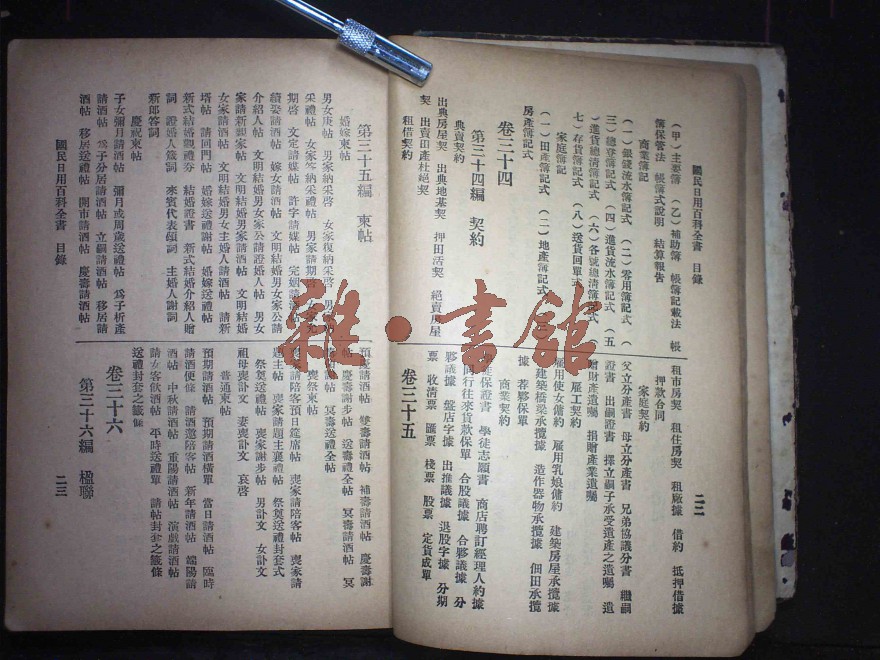 國民日用百科全書 目錄
二二
（甲）主要簿 （乙）補助簿 帳簿記載法 帳
簿保管法 帳簿式說明 結算報告
商業簿記
（一）銀錢流水簿記式 （二）零用簿記式 （
三）總登簿記式 （四）進貨流水簿記式 （五
）進貨總清簿記式 （六）各號總清簿式 （
七）存貨簿記式 （八）送貨回單式
家庭簿記
（一）田產簿記式 （二）地產簿記式
房產簿記式
卷三十四
第三十四編 契約
典賣契約
出典房屋契 出典地基契 押田活契 絕賣房屋
契 出賣田產杜絕契
租借契約
租市房契 租住房契 租廠據 借約 抵押借據
押款合同
家庭契約
父立分產書 母立分產書 兄弟協議分書 繼嗣
證書 出嗣證書 擇立嗣子承受遺產之遺囑 遺
贈財產遺囑 捐贈產業遺囑
雇工契約
雇用使女傭約 雇用乳娘傭約 建築房屋承攬據
建築橋梁承攬據 造作器物承攬據 佃田承攬
據 荐夥保單
商業契約
保證書 學徒志願書 商店聘訂經理人約據
同行往來貨款保單 合股議據 合夥議據 分
夥議據 盤店字據 出推議據 退股字據 分期
票 收清票 匯票 棧票 股票 定貨成單
卷三十五
第三十五編 柬帖
婚嫁柬帖
男女庚帖 男家納采啓 女家復納采啓
采禮帖 女家答納采禮帖 男家請期啓
期啓 文定請媒帖 許字請媒帖 完姻請酒
續娶請酒帖 嫁女請酒帖 文明結婚男女家公請
介紹人帖 文明結婚男女家公請證婚人帖 男女
家請新親家帖 文明結婚男家請酒帖 文明結婚
女家請酒帖 文明結婚男女主婚人請酒帖 請新
壻帖 請回門帖 婚嫁送禮謝帖 婚嫁送禮帖
新式結婚觀禮券 結婚證書 新式結婚介紹人贈
詞 證婚人箴詞 來賓代表頌詞 主婚人謝詞
新郎答詞
慶祝柬帖
子女彌月請酒帖 彌月或周歲送禮帖 爲子析產
請酒帖 爲子分居請酒帖 立嗣請酒帖 移居請
酒帖 移居送禮帖 開市請酒帖 慶壽請酒帖
預慶請酒帖 雙壽請酒帖 補壽請酒帖 慶壽謝
帖 慶壽謝步帖 送壽禮全帖 冥壽請酒帖 冥
冥壽送禮全帖
喪祭柬帖
喪家請陪客預日筵席帖 喪家請陪客帖 喪家請
題主帖 喪家請題主襄禮帖 祭奠送禮封套式
祭奠送禮帖 喪家謝步帖 男訃文 女訃文
祖母喪訃文 妻喪訃文 哀啓
普通柬帖
預期請酒帖 預期請酒橫單 當日請酒帖 臨時
請酒便條 請酒邀陪客帖 新年請酒帖 端陽請
酒帖 中秋請酒帖 重陽請酒帖 演戲請酒帖
請女客飲酒帖 平時送禮單 請帖封套之籤條
送禮封套之籤條
卷三十六
第三十六編 楹聯
國民日用百科全書 目錄
二三
雜·書館